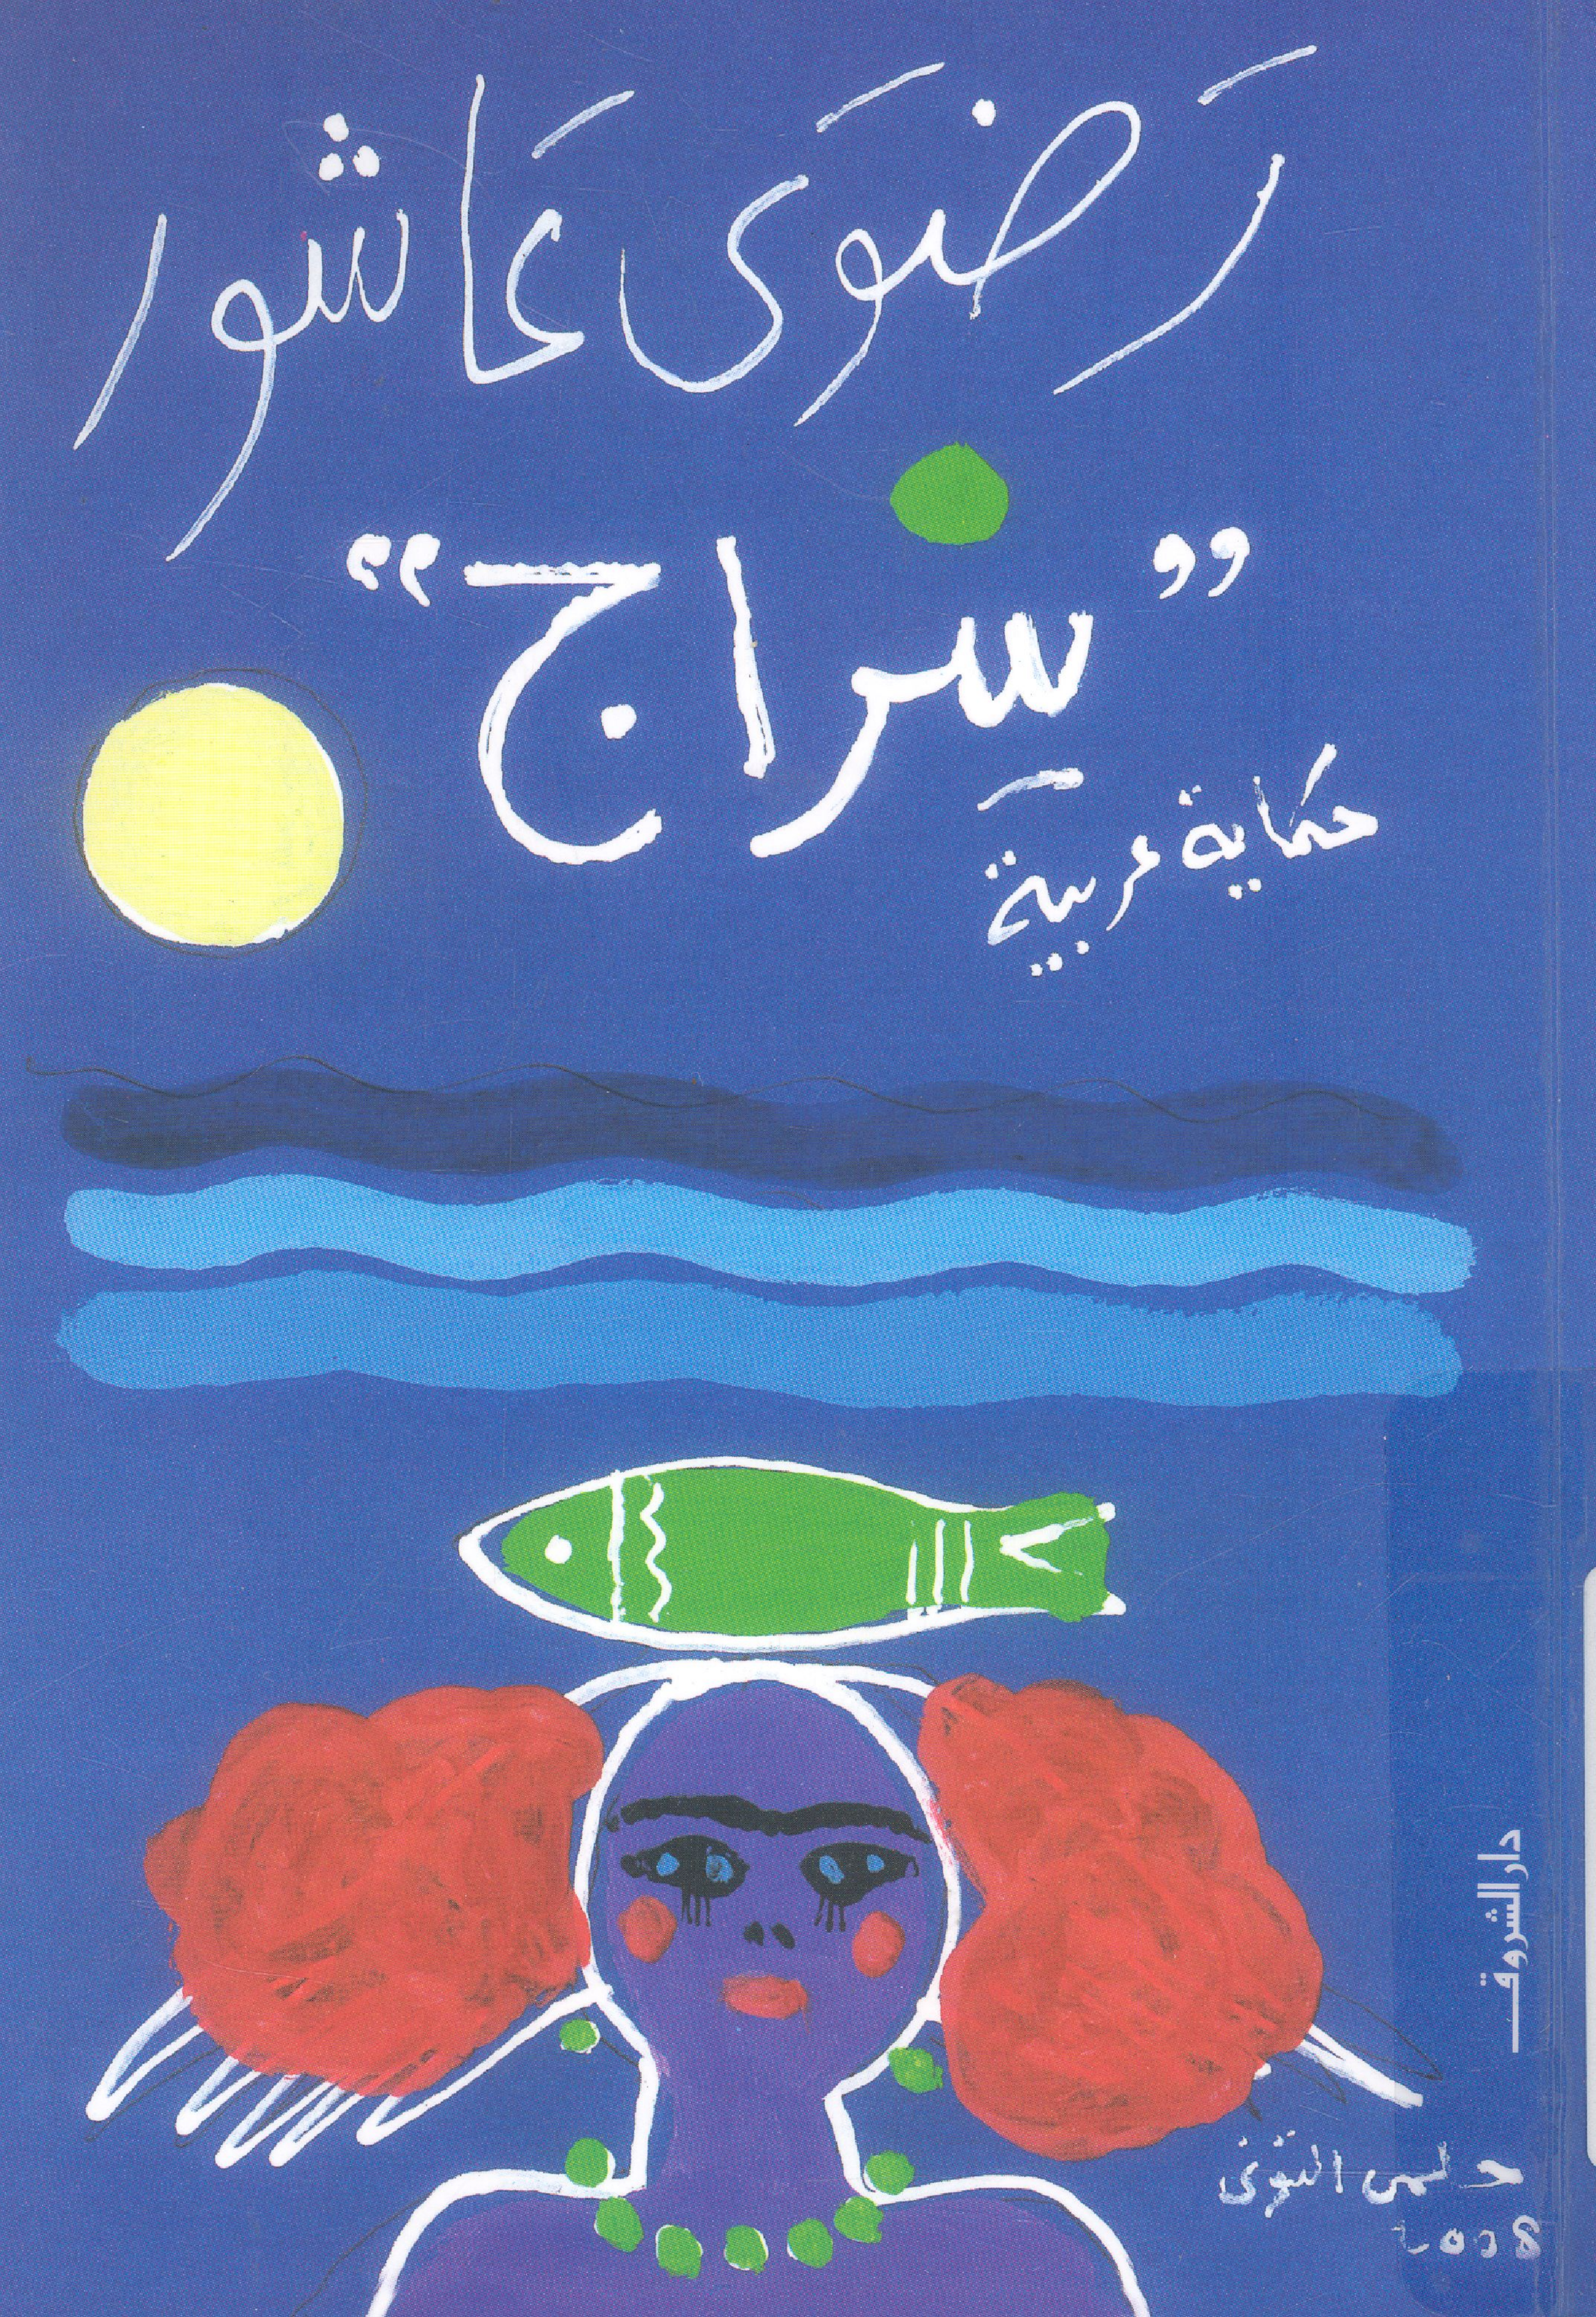 رَضوَى عَاشور
”سراج“
حكاية عربية
دار الشروق
حلمى التونى
2008